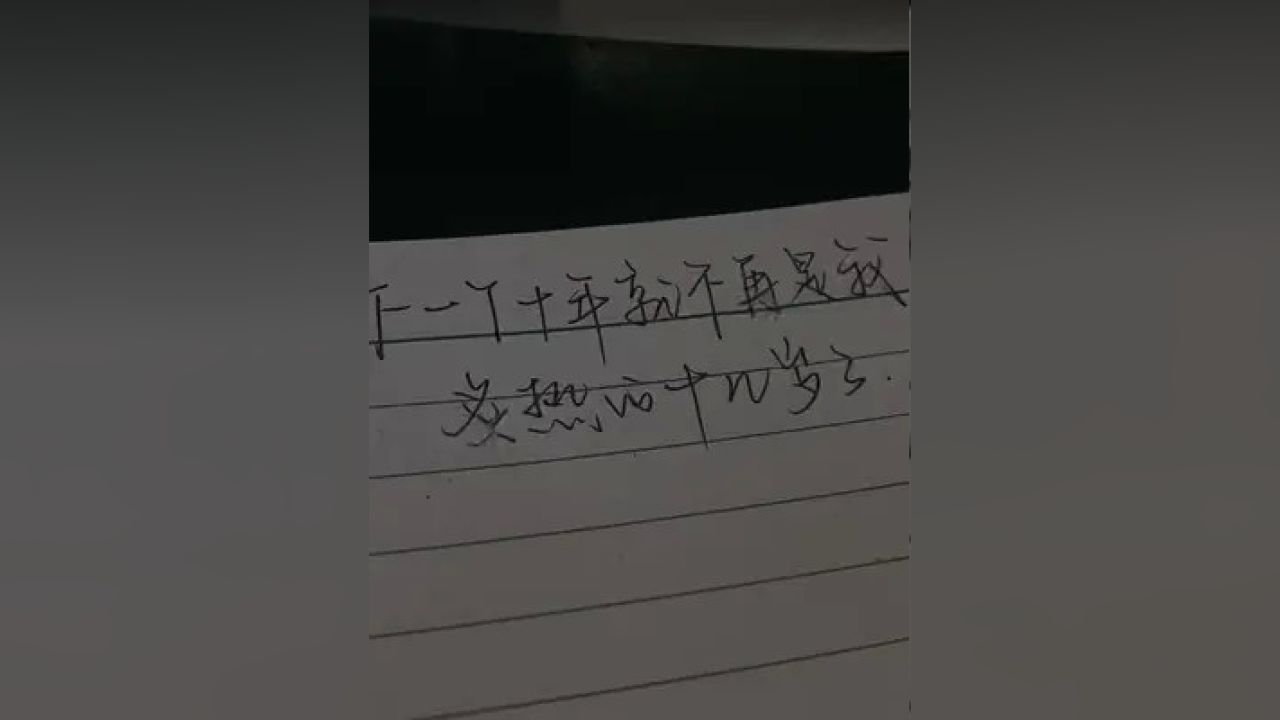 下一个十年就不再是我
炙热的十几岁了.